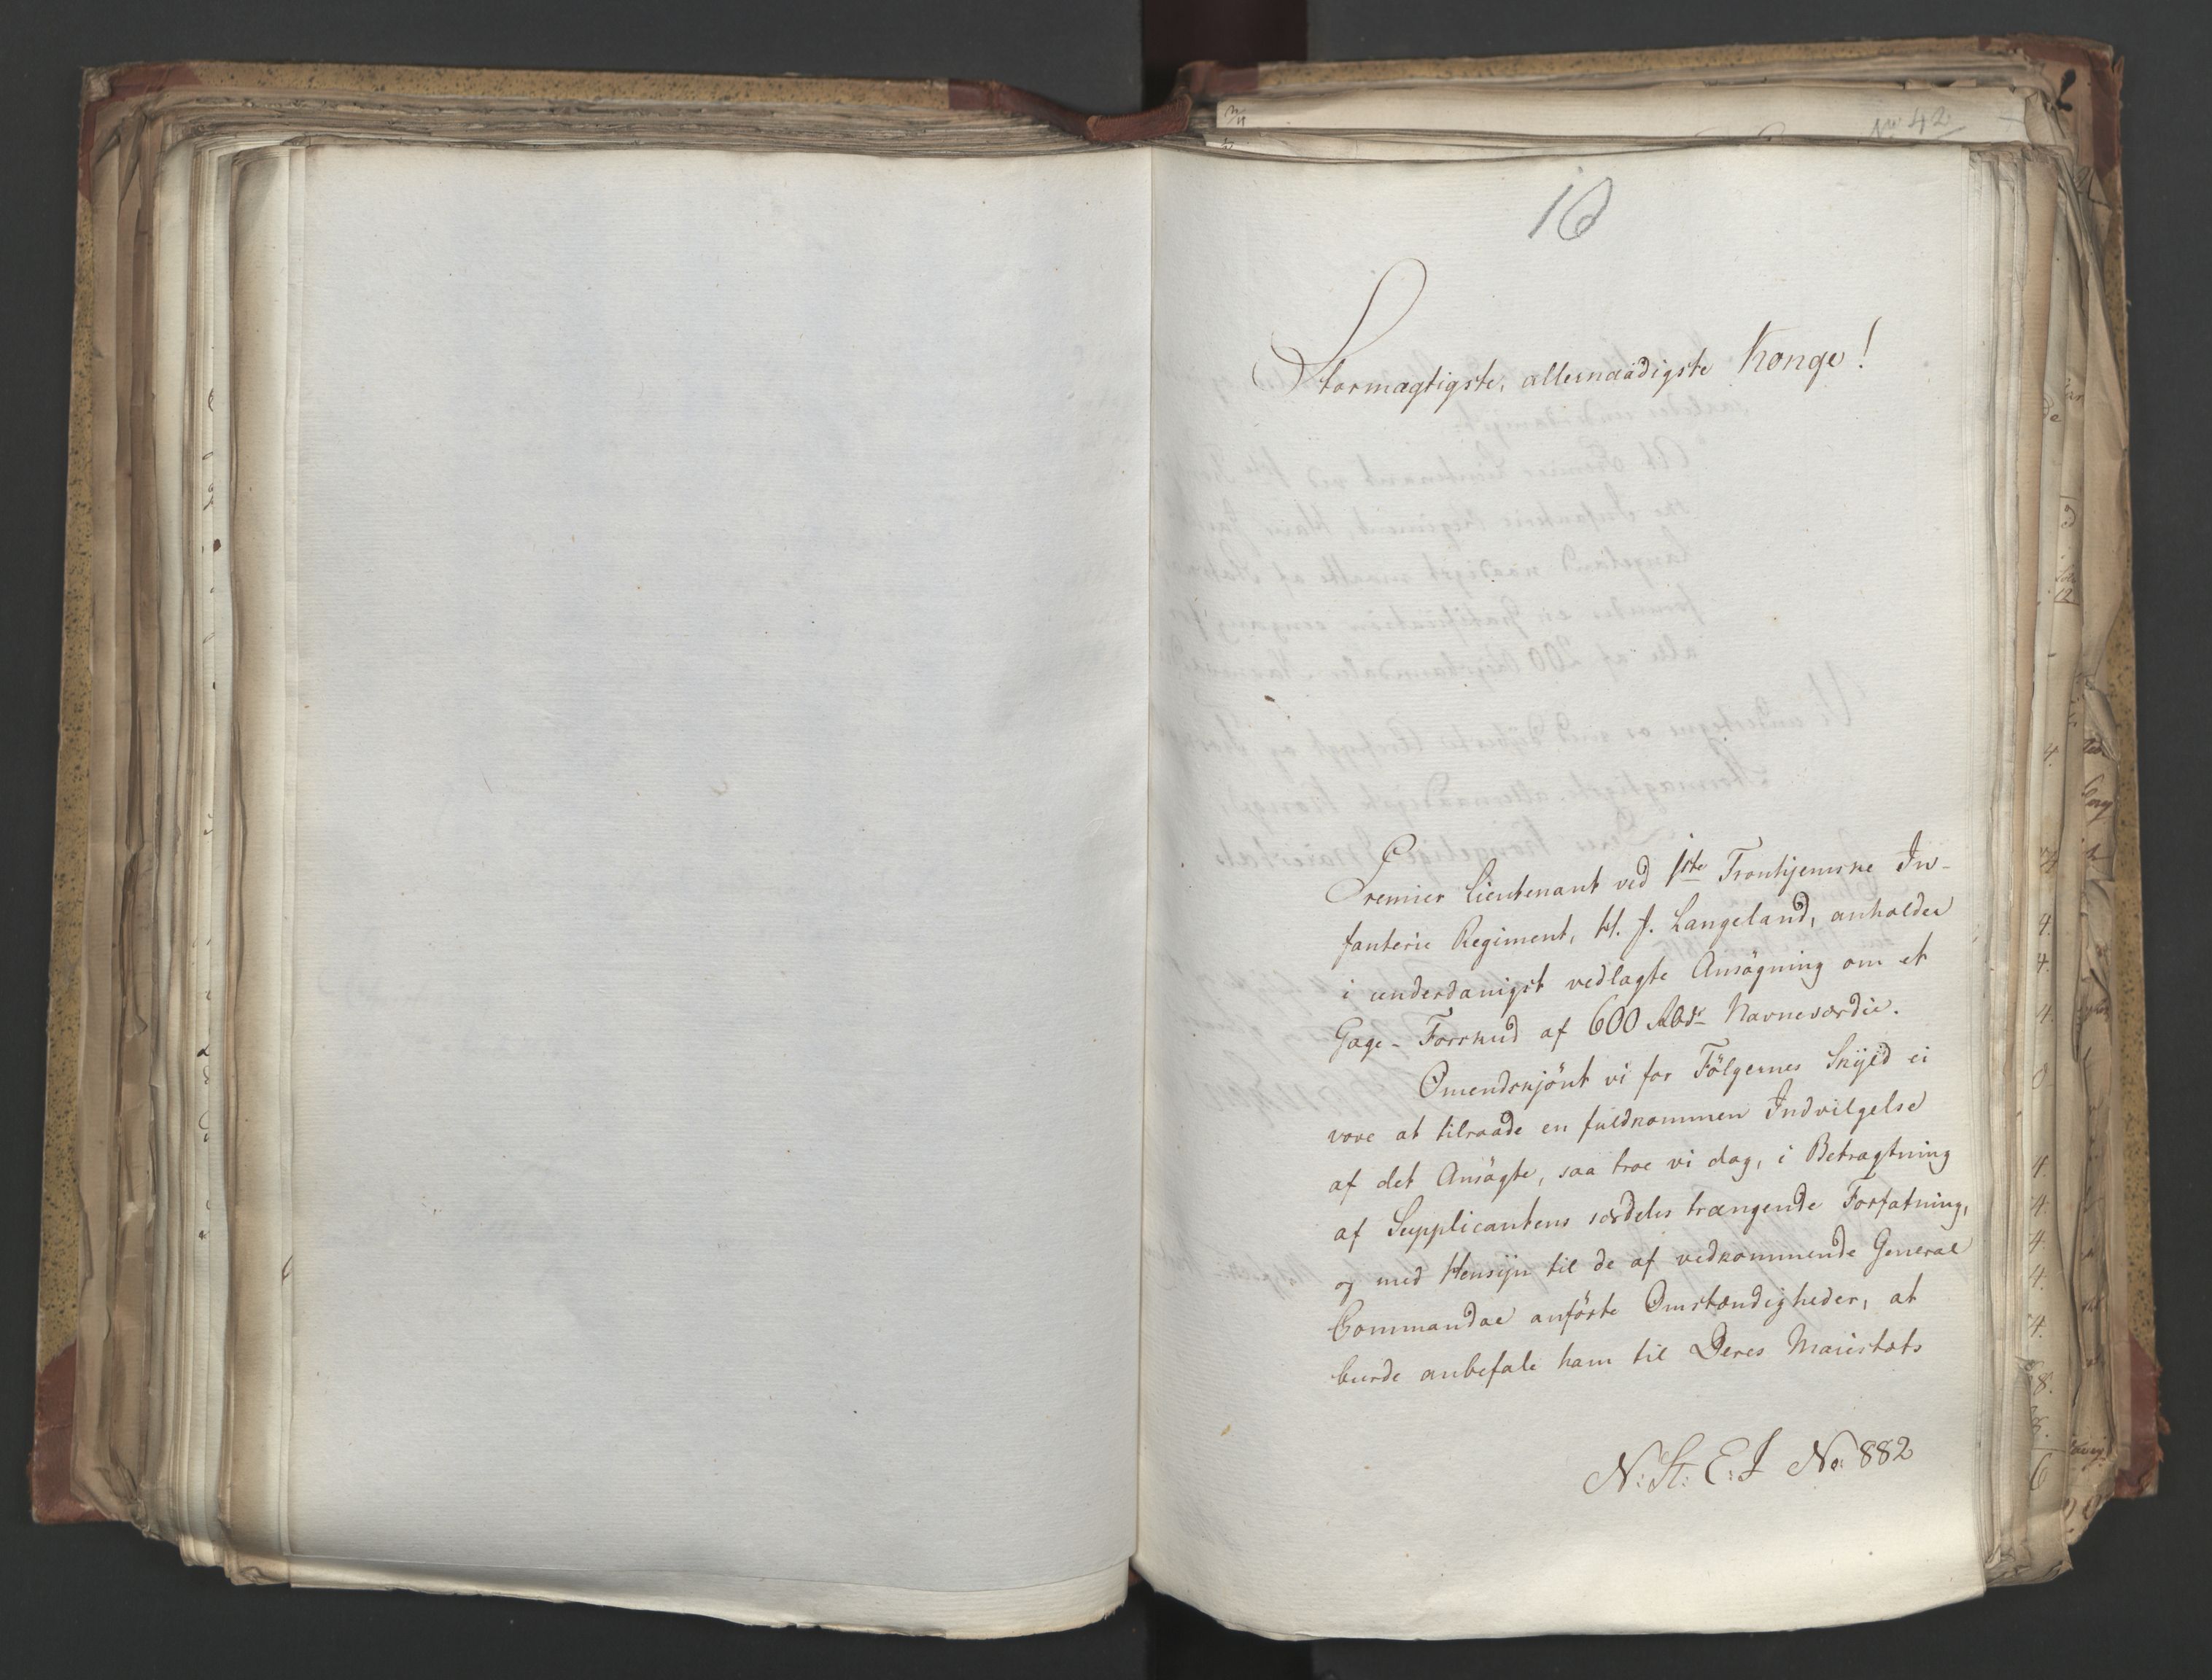 10
Stormægtigste, allernaadigste Konge!
Premier Lieutenant ved 1ste Tronhjemske In-
fanterie Regiment, H. J. Langeland, anholder
i underdanigst vedlagte Ansögning om et
Gage-Forskud af 600 Rbdr Navneværdie.
Omendskjönt vi for Fölgernes Skyld ei
vove at tilraade en fuldkommen Indvilgelse
af det Ansögte, saa troe vi dog, i Betragtning
af Supplicantens særdeles trængende Forfatning,
og med Hensyn til de af vedkommende General
Commandoe anförte Omstændigheder, at
burde anbefale ham til Deres Majestæts
N: St: E: J No 882
No 42